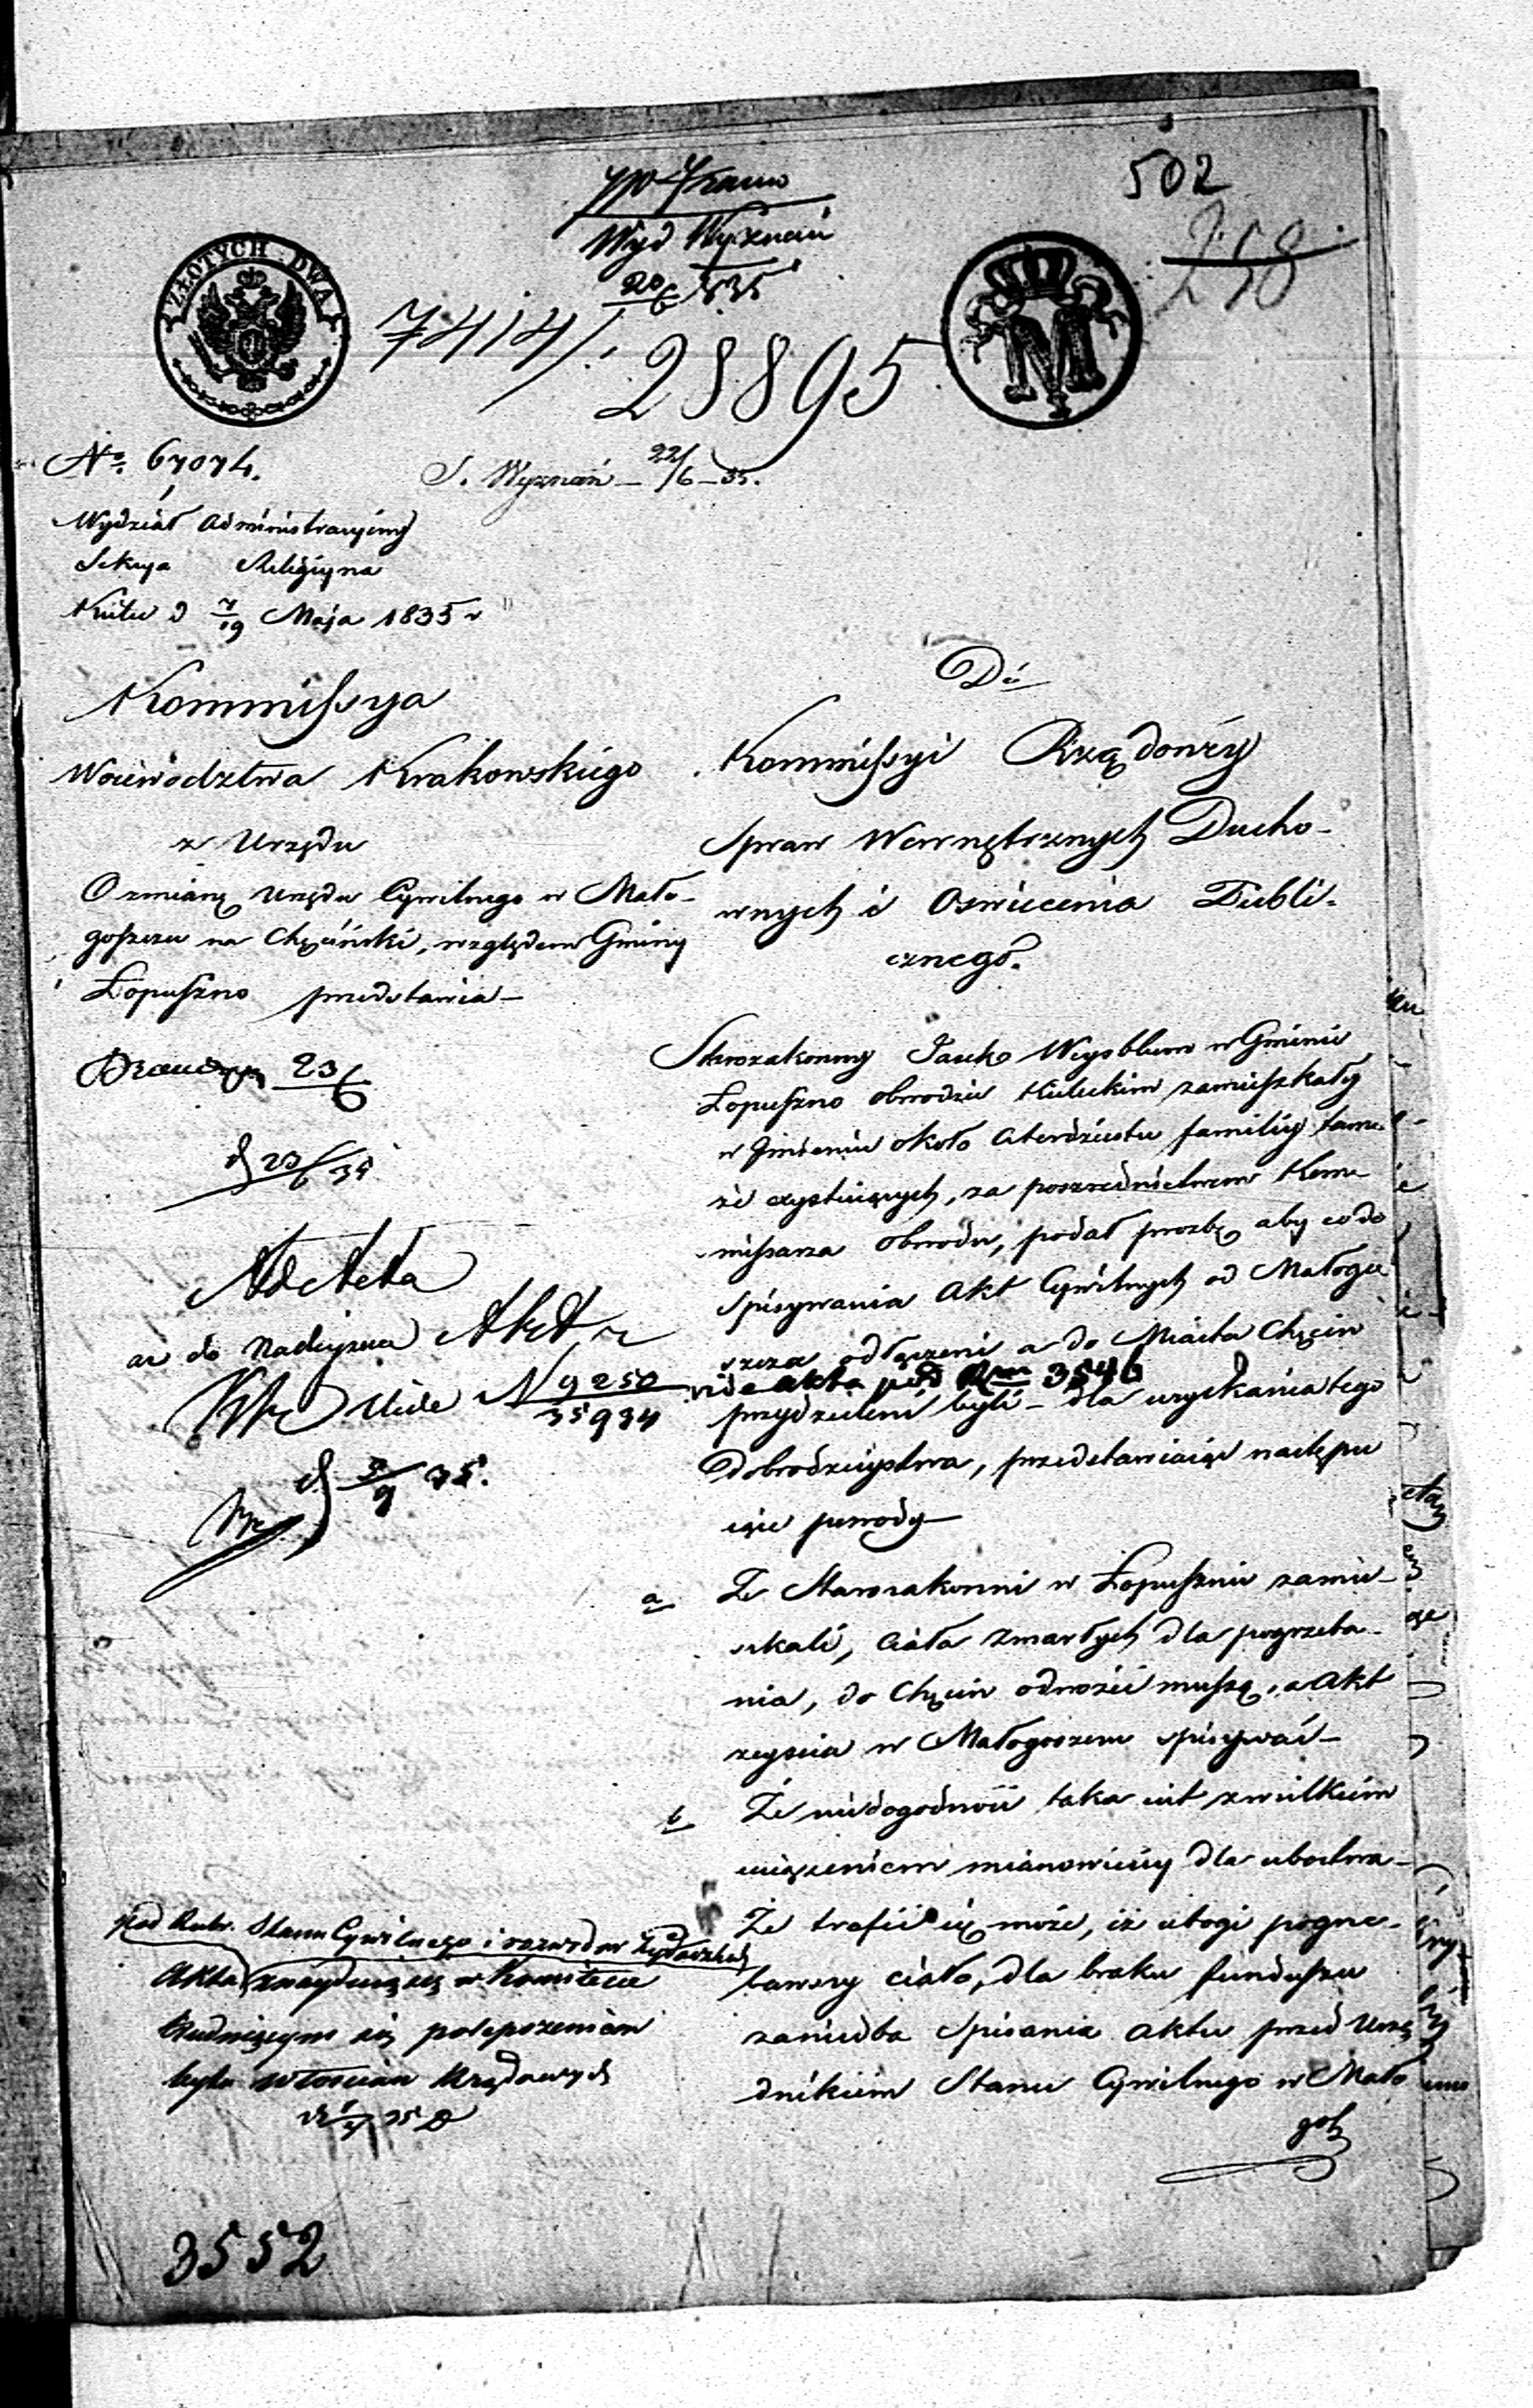 502
258
Wyd Wyznań
20/6 835
ZŁOTYCH DWA
7414/.
28895
No. 67074.
S. Wyznań – 22/6 – 35.
Wydział Administracyiny
Sekcya Religiyna
Kielce d 7/19 Maja 1835 r
Kommissya
Woiewodztwa Krakowskiego
z Urzędu
O zmianę Urzędu Cywilnego w Mało-
goszczu na Chęciński, względem Gminy
Łopuszno przedstawia –
23/6
d 23/6 35
Ad Acta
N 9250/35934
d 3/9 35.
Do
Kommissyi Rządowéy
Spraw Wewnętrznych Ducho-
wnych i Oswiecenia Publi-
cznego.
Starozakonny Jasek Waysblum w Gminie
Łopuszno obwodzie Kieleckim zamieszkały
w Imieniu około czterdziestu familiy tam-
że exystuiących, za posrzednictwem Kom-
missarza Obwodu, podał prozbę aby co do
spisywania Akt Cywilnych od Małogo
szcza odłączeni a do Miasta Chęcin
vide akta pod Rm 3546
przydzieleni byli – dla uzyskania tego
Dobrodzieystwa, przedstawiaiąc następu
iące powody –
a Że Starozakonni w Łopusznie zamie-
szkali, ciała zmarłych dla pogrzeba-
nia, do Chęcin odwozić muszą, a Akt
zeyscia w Małogoszczu spisywać –
b Że niedogodność taka iest z wielkim
uciążeniem mianowiciey dla ubostwa –
Że trafić się może, iż ubogi pogrze-
bawszy ciało, dla braku funduszu
zaniedba spisania aktu przed Urzę
dnikiem Stanu Cywilnego w Mało
gosz
pod Rubr. Stanu Cywilnego i rozwodow Żydowskich
Akta znayduią się w Komitecie
trudniącym się polepszeniem
bytu włościan Rządowych
3552